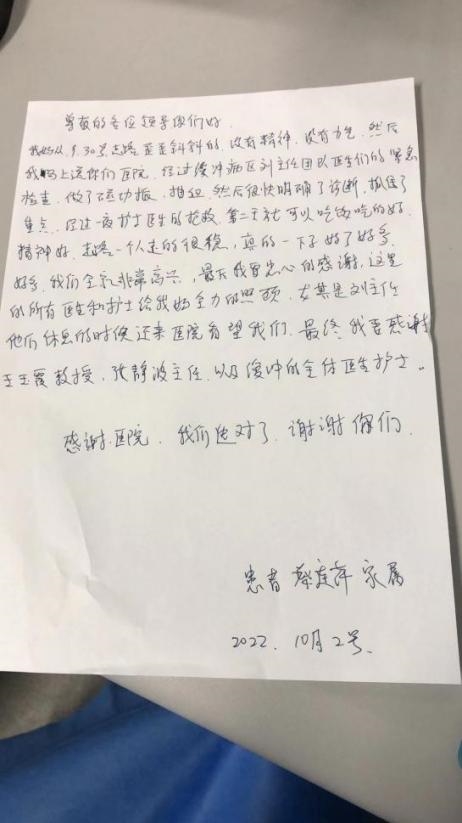 尊敬的各位领导你们好
我妈从9.30号走路歪歪斜斜的,没有精神,没有力气,然后
我马上送你们医院,经过缓冲病区刘主任团队医生们的紧急
检查,做了磁功振,抽血,然后很快明确了诊断,抓住了
重点,经过一夜护士医生的抢救,第二天就可以吃饭吃的好,
精神好,走路一个人走的很稳,真的一下子好了好多
好多,我们全家非常高兴,最后我要忠心的感谢,这里
的所有医生和护士给我妈全力的照顾,尤其是刘主任
他们休息的时候还来医院看望我们,最终我要感谢
王玉霞教授,张静波主任,以及缓冲的全体医生护士。
感谢.医院,我们选对了,谢谢你们.
患者 蔡 家属
2022. 10月2号、